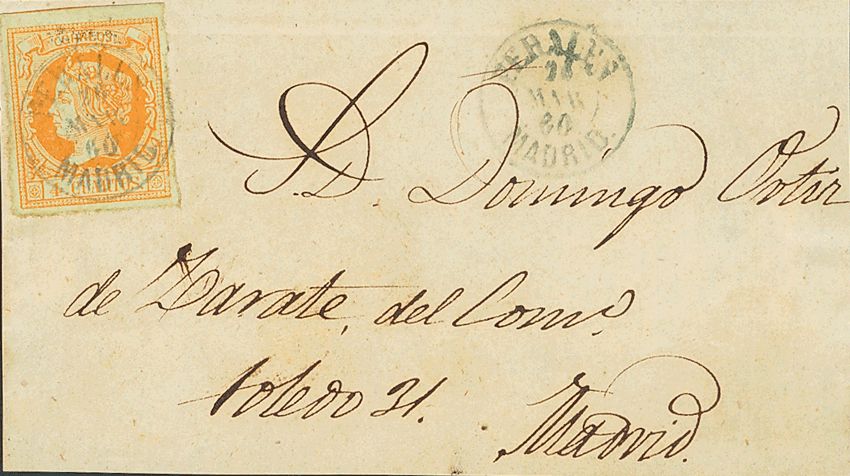 CORREOS
MADRID.
MAR
60
MADRID.
S. D. Domingo Ortiz
de Zarate, del Com.º
Toledo 31.
Madrid.